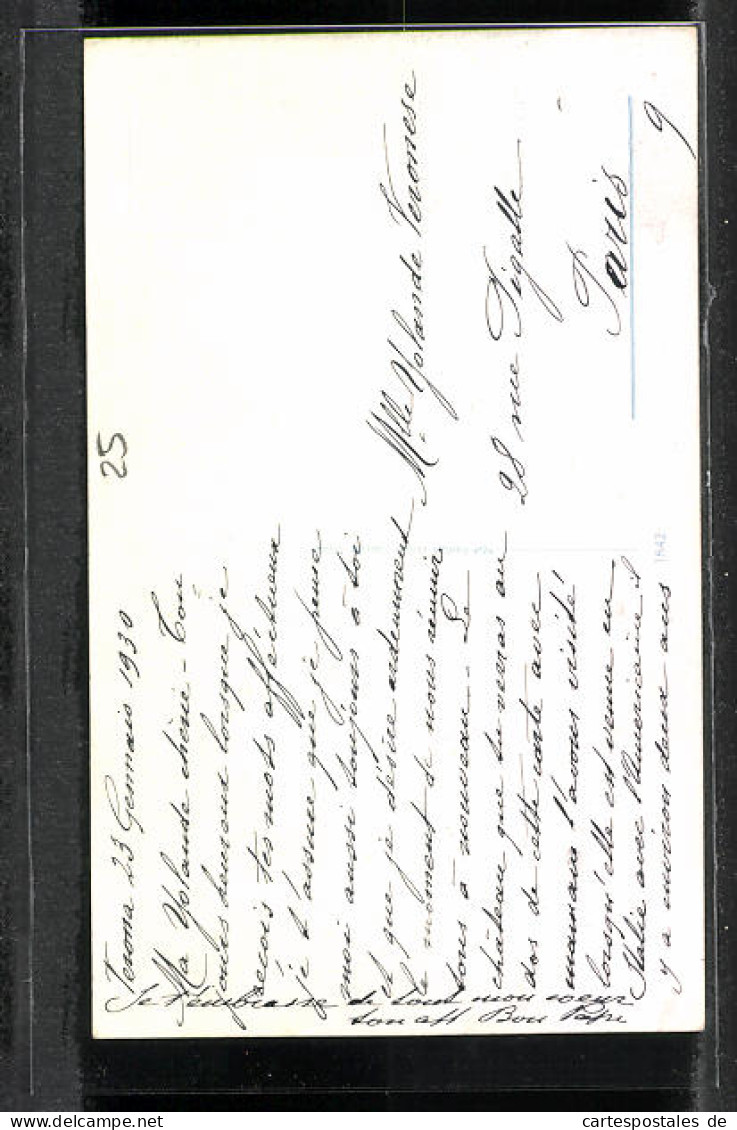 25
Verona 23 Gennais 1930
Ma Yolande chérie - Tou
jours heureux lorsque je
recois tes mots affectueux
je t'assure que je pense
moi aussi toujours à toi
et que je désire ardemment
le moment de nous réunir
tous à nouveau - Le
château que tu verras au
dos de cette carte avec
maman l'avons visité
lorsqu'elle est venue en
Italie avec l'Americaine il
y a environ deux ans
Je t'embrasse de tout mon coeur
ton aff Bon Papa
Mlle Yolande Veronese
28 rue Pigalle
Paris 9
1642
Ansichtskarten-Center Onlineshop
cartespostales de